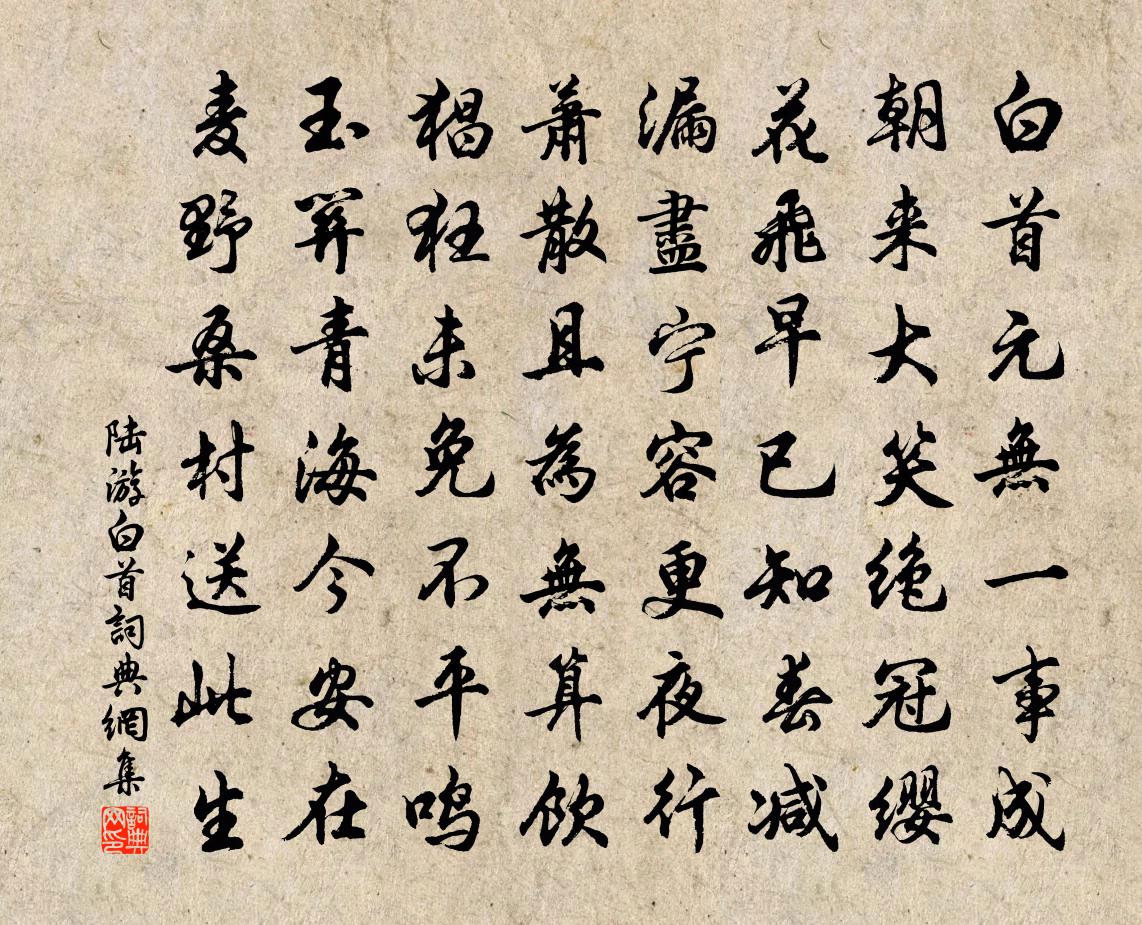 白首元無一事成
朝来大笑绝冠纓
花飛早已知春减
漏盡宁容更夜行
蕭散且為無算飲
猖狂未免不平鸣
玉關青海今安在
麦野桑村送此生
陆游白首詞典網集
詞典网印